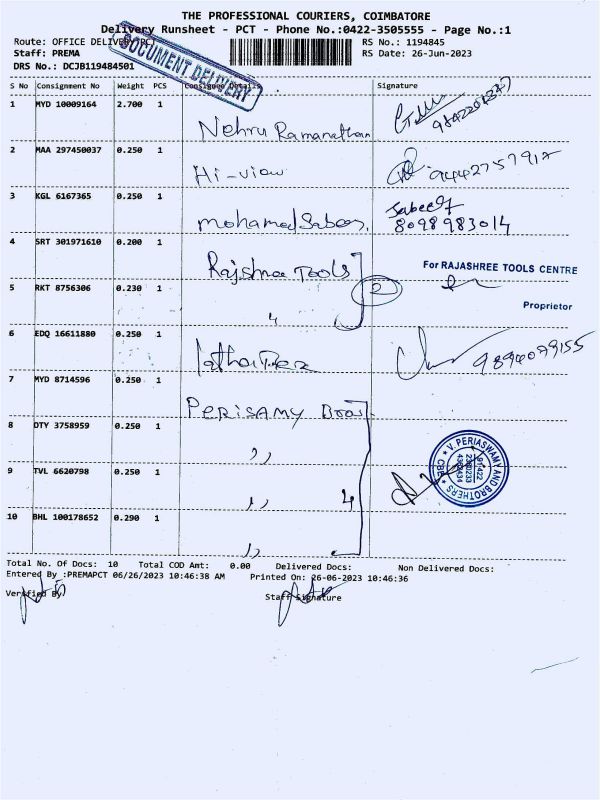 THE PROFESSIONAL COURIERS, COIMBATORE
Delivery Runsheet - PCT - Phone No.:0422-3505555 - Page No.:1
Route: OFFICE DELIVERY(PCT)
RS No.: 1194845
Staff: PREMA
RS Date: 26-Jun-2023
DRS No.: DCJB119484501
DOCUMENT DELIVERY
S No Consignment No Weight PCS Consignee Details Signature
1 MYD 10009164 2.700 1
Nehru Ramanathan
2 MAA 297450037 0.250 1
Hi-view 9442757917
3 KGL 6167365 0.250 1
mohamed Sabeer.
8098983014
4 SRT 301971610 0.200 1
Rajshree Tools
For RAJASHREE TOOLS CENTRE
5 RKT 8756306 0.230 1
2
〃
Proprietor
6 EDQ 16611880 0.250 1
9894079155
7 MYD 8714596 0.250 1
PERISAMY Bros
8 DTY 3758959 0.250 1
〃
V. PERIASWAMY AND BROTHERS
CBE
9 TVL 6620798 0.250 1
〃 4
10 BHL 100178652 0.290 1
〃
Total No. Of Docs: 10 Total COD Amt: 0.00 Delivered Docs: Non Delivered Docs:
Entered By :PREMAPCT 06/26/2023 10:46:38 AM Printed On: 26-06-2023 10:46:36
Verified By
Staff Signature